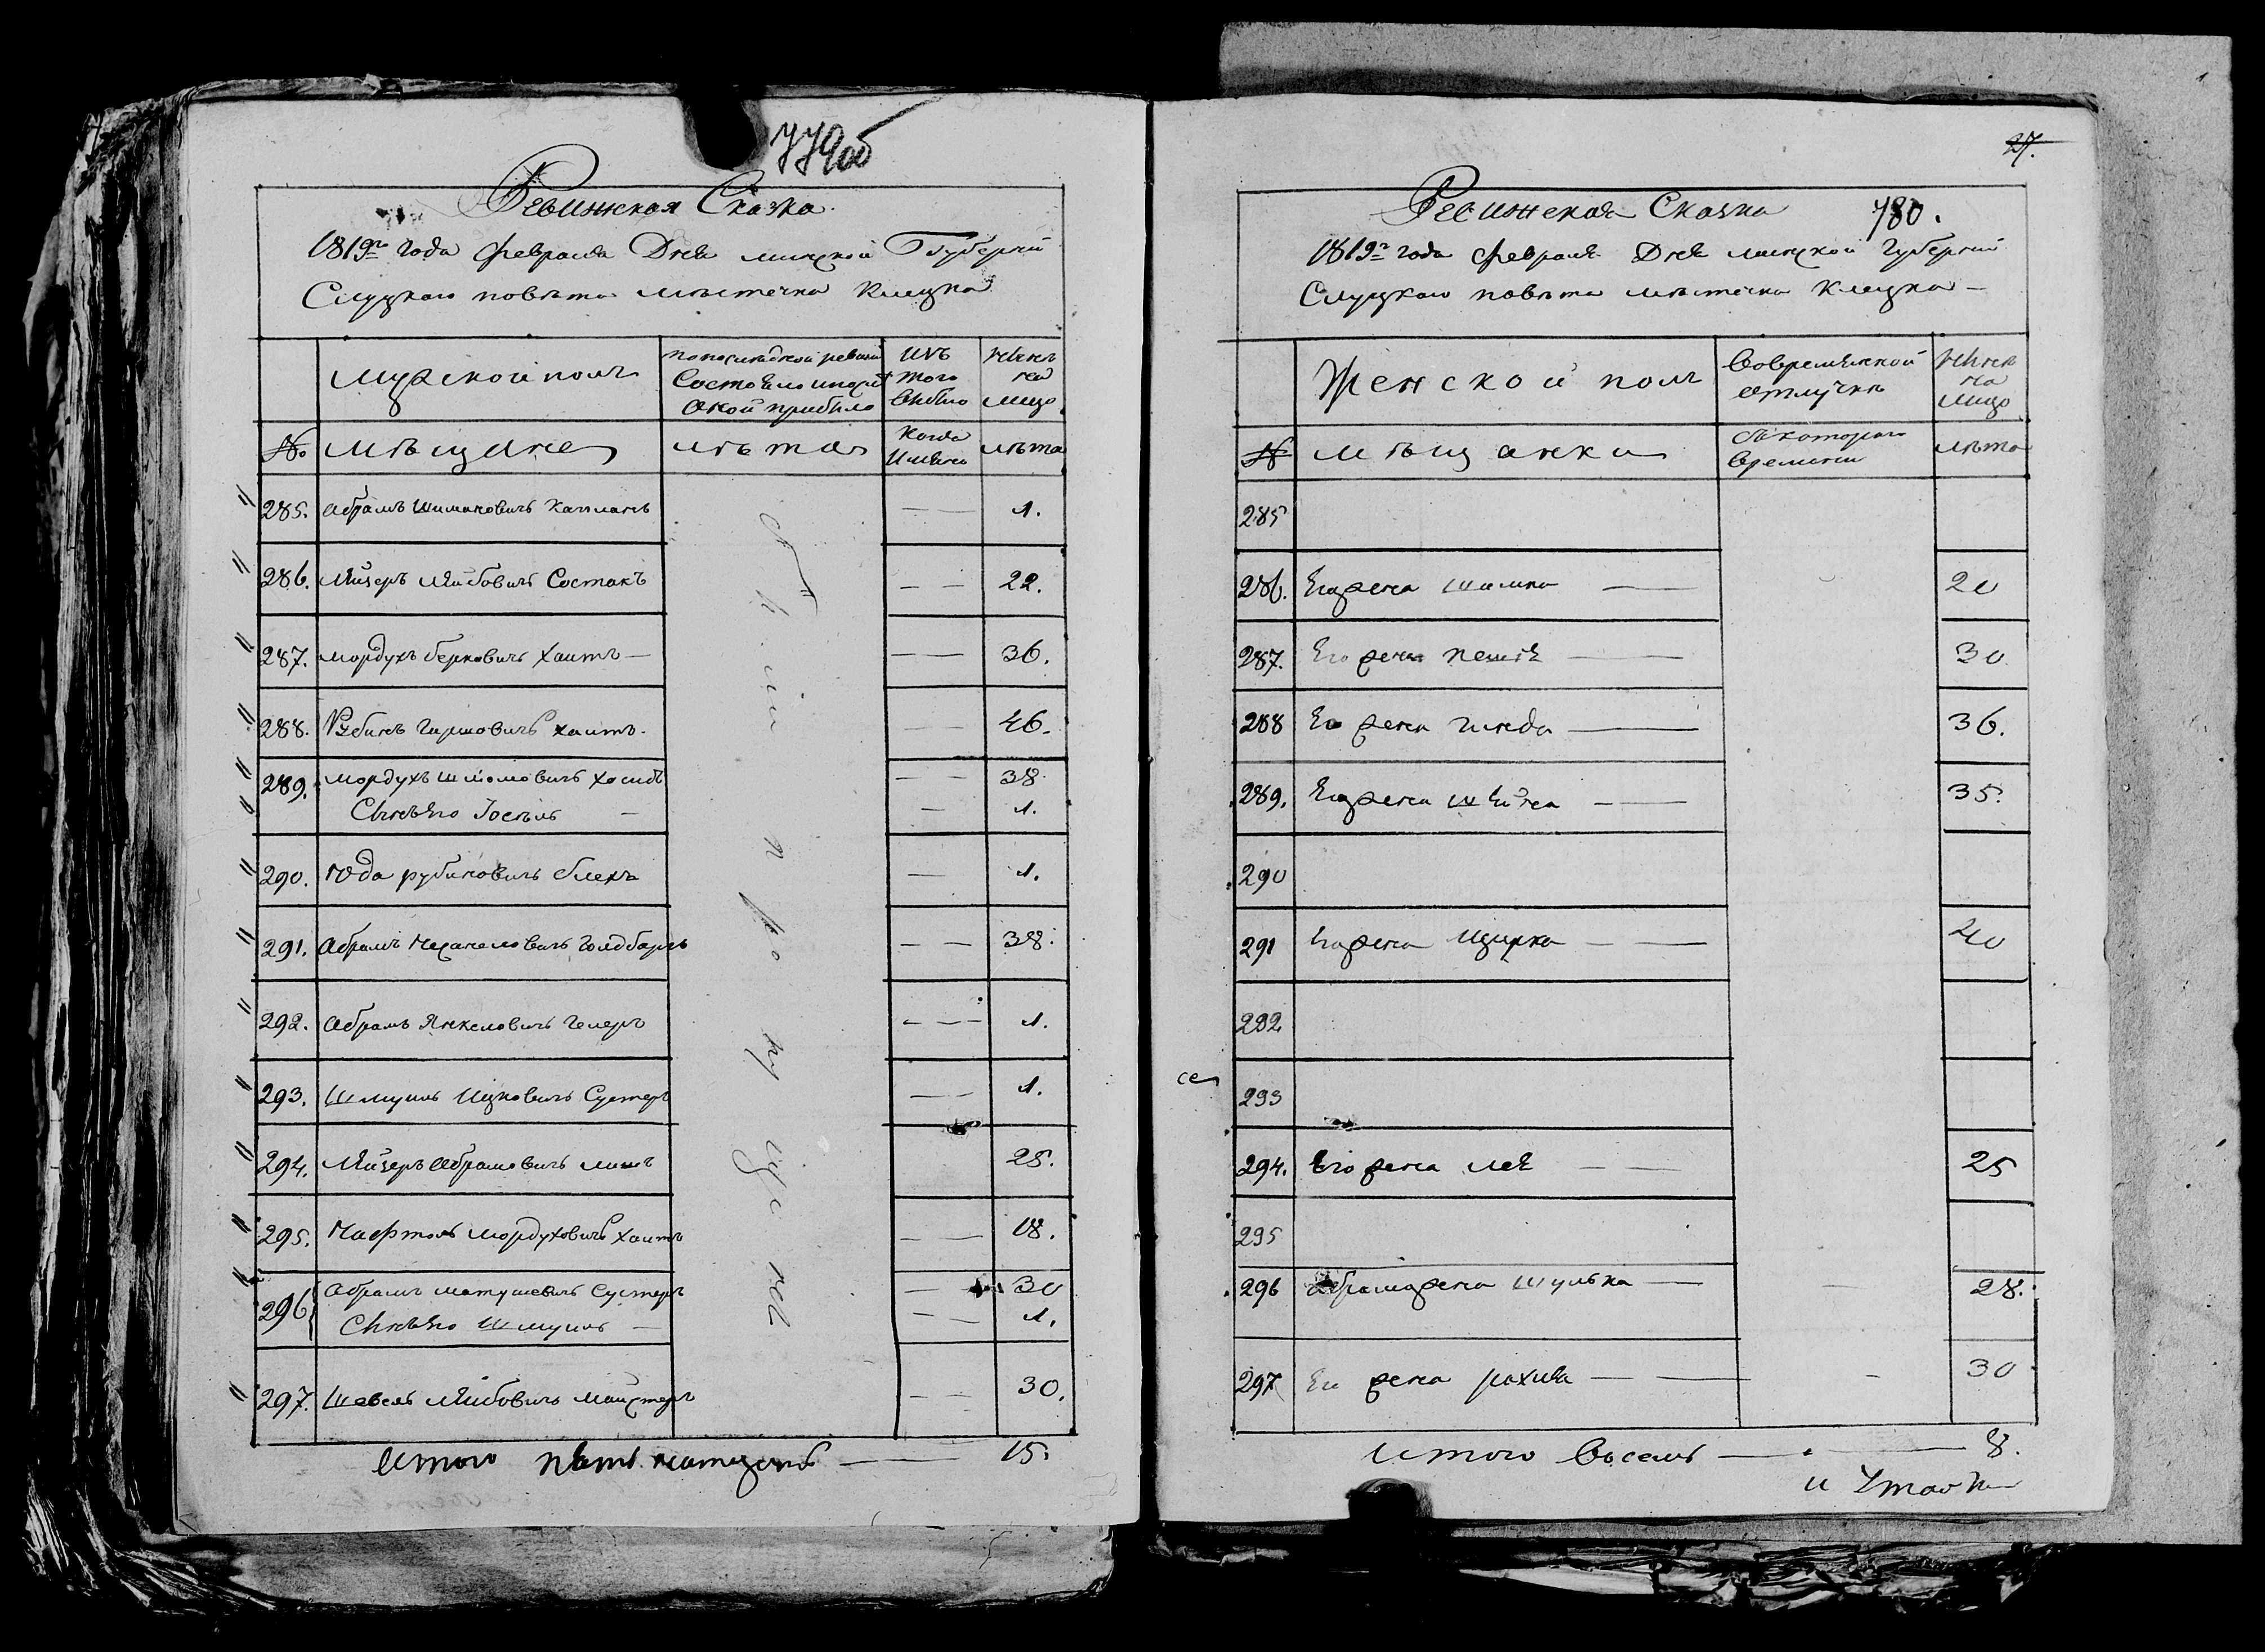 779об
Ревижская Сказка
1819го года февраля Дня минской Губернии
Слуцкаго повѣта мѣстечка Клецка
Мужской полъ
по последней ревизіи
Состояло
оной прибыло
изъ
того
выбыло
нынѣ
на
лицо
№ мѣщане
лѣта
когда
именно
лѣта
285. Абрамъ Шимановичъ Капланъ — — 1.
286. Лейзеръ Лейбовичъ Состакъ — — 22.
287. мордухъ берковичъ хаитъ — — — 36.
288. Рубинъ Гиршовичъ хаитъ. — — 46.
289. мордухъ Шломовичъ — — 38
Сынъ Его Іосель — — 1.
290. Юда рубиновичъ блехъ — 1.
291. Абрамъ Голдбаргъ — — 38.
292. Абрамъ Янкеловичъ Гелеръ — — — 1.
293. Шмуиль Ицковичъ Сустеръ — — 1.
294. Лейзеръ Абрамовичъ 25.
295. Нафтоль Мордуховичъ хаитъ — — 18.
296 Абрамъ матушевичъ Сустеръ — — 30
Сынъ Его Шмуиль — — — 1.
297. Шевель Лейбовичъ Майстеръ — — 30.
Итого пять натцеть — 15.
27.
780.
Ревижская Сказка
1819го года февраля Дня минской Губерніи
Слуцкаго повѣта мѣстечка Клецка —
Женской полъ
Вовремянной
отлучкѣ
нынѣ
на
лицо
№ мѣщанки
съ котораго
времени
лѣта
285
286. Его жена Шимка — 20
287. Его жена Пешѣ — 30
288 Его жена Гинда — 36.
289. Его жена Шейна — — 35.
290
291 Его жена Мцирка — — 40
292
293
294. Его жена Лея — — 25
295
296 Абрама жена Шулька — — 28.
297 Его жена рохля — — — 30
Итого восемь — 8.